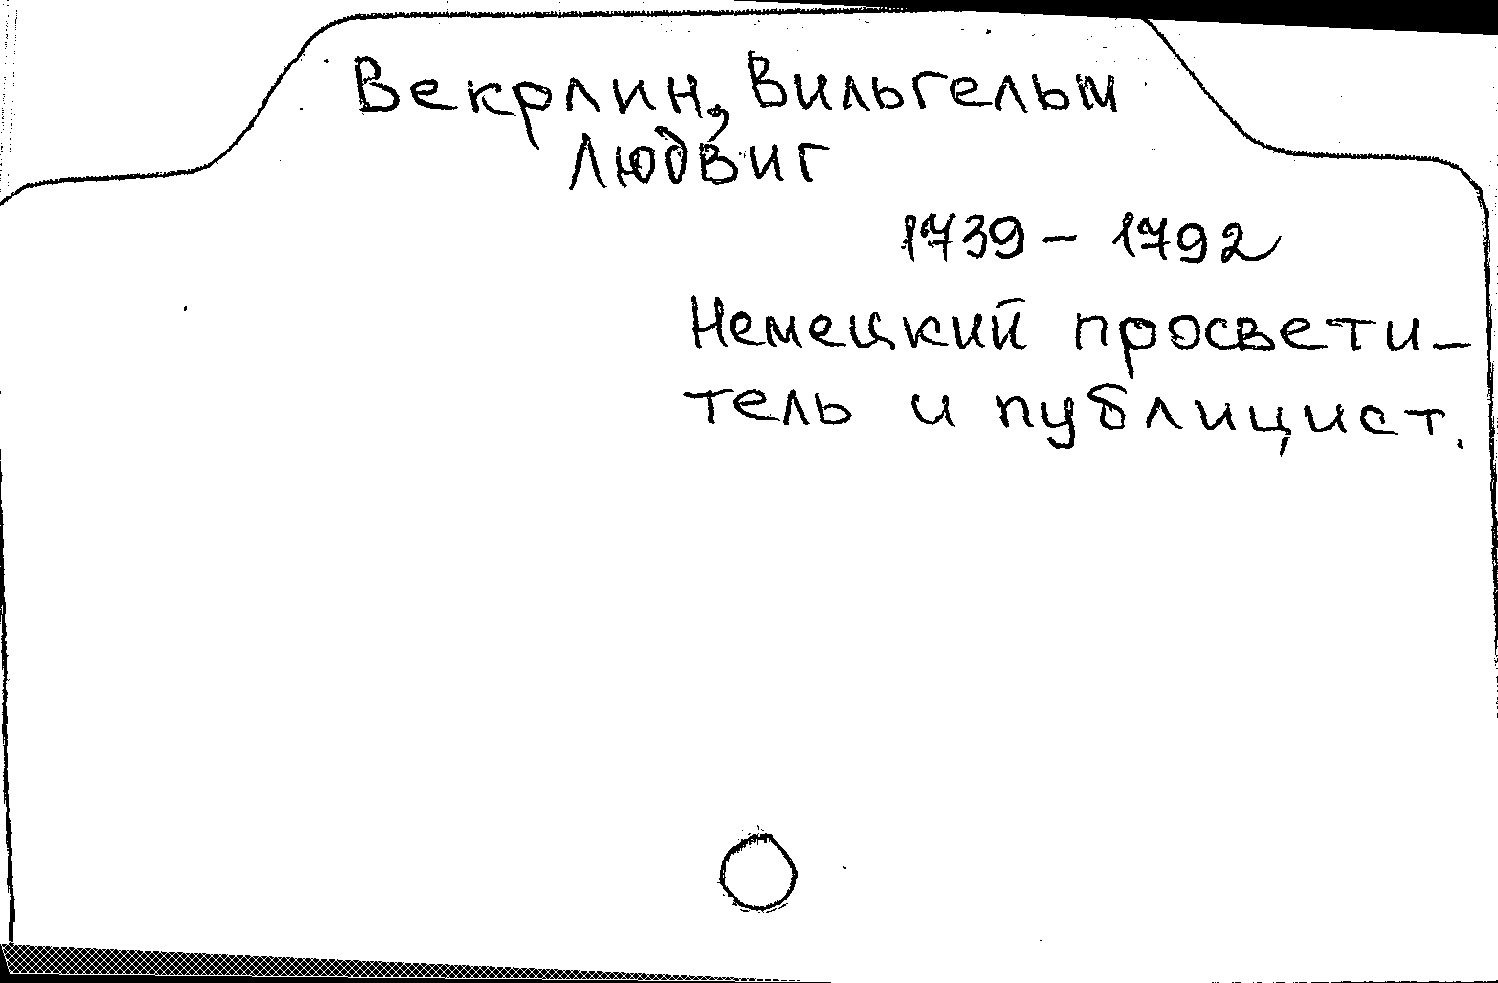 Векрлин, Вильгельм
Людвиг
1739 – 1792
Немецкий просвети-
тель и публицист.